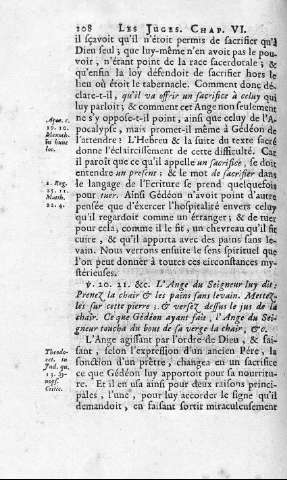 108 LES JUGES. CHAP. VI.
il sçavoit qu'il n'étoit permis de sacrifier qu'à
Dieu seul; que luy-même n'en avoit pas le pou-
voir, n'étant point de la race sacerdotale; &
qu'enfin la loy défendoit de sacrifier hors le
lieu où étoit le tabernacle. Comment donc dé-
clare-t-il, qu'il va offrir un sacrifice à celuy qui
luy parloit; & comment cet Ange non seulement
ne s'y oppose-t-il point, ainsi que celuy de l'A-
pocalypse, mais promet-il même à Gédéon de
l'attendre? L'Hebreu & la suite du texte sacré
donne l'éclaircissement de cette difficulté. Car
il paroît que ce qu'il appelle un sacrifice, se doit
entendre un present; & le mot de sacrifier dans
le langage de l'Ecriture se prend quelquefois
pour tuer. Ainsi Gédéon n'avoit point d'autre
pensée que d'exercer l'hospitalité envers celuy
qu'il regardoit comme un étranger; & de tuer
pour cela, comme il le fit, un chevreau qu'il fit
cuire, & qu'il apporta avec des pains sans le-
vain. Nous verrons ensuite le sens spirituel que
l'on peut donner à toutes ces circonstances my-
stérieuses.
Apoc. c.
19. 10.
in hunc
loc.
1. Reg.
25. 11.
Matth.
22. 4.
v. 20. 21. &c. L'Ange du Seigneur luy dit:
Prenez la chair & les pains sans levain. Mettez-
les sur cette pierre: & versez dessus le jus de la
chair. Ce que Gédéon ayant fait, l'Ange du Sei-
gneur toucha du bout de sa verge la chair, &c.
L'Ange agissant par l'ordre de Dieu, & fai-
sant, selon l'expression d'un ancien Pére, la
fonction d'un prêtre, changea en un sacrifice
ce que Gédéon luy apportoit pour sa nourritu-
re. Et il en usa ainsi pour deux raisons princi-
pales, l'une, pour luy accorder le signe qu'il
demandoit, en faisant sortir miraculeusement
Theodo-
ret. in
Jud. qu.
13. Sy-
nops.
Critic.